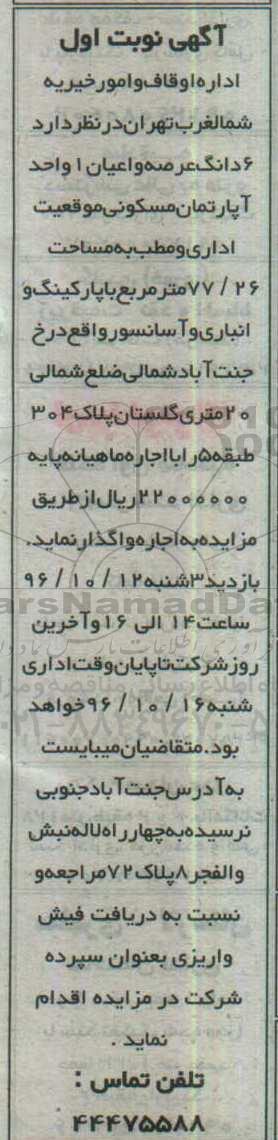 آگهی نوبت اول
اداره اوقاف و امور خیریه
شمالغرب تهران در نظر دارد
۶ دانگ عرصه و اعیان ۱ واحد
آپارتمان مسکونی موقعیت
اداری و مطب به مساحت
۷۷ / ۲۶ متر مربع با پارکینگ و
انباری و آسانسور واقع در خ
جنت آباد شمالی ضلع شمالی
۲۰ متری گلستان پلاک ۳۰۴
طبقه ۵ را با اجاره ماهیانه پایه
۲۲۰۰۰۰۰۰ ریال از طریق
مزایده به اجاره واگذار نماید.
بازدید ۳ شنبه ۱۲ / ۱۰ / ۹۶
ساعت ۱۴ الی ۱۶ و آخرین
روز شرکت تا پایان وقت اداری
شنبه ۱۶ / ۱۰ / ۹۶ خواهد
بود. متقاضیان میبایست
به آدرس جنت آباد جنوبی
نرسیده به چهار راه لاله نبش
والفجر ۸ پلاک ۷۲ مراجعه و
نسبت به دریافت فیش
واریزی بعنوان سپرده
شرکت در مزایده اقدام
نماید .
تلفن تماس :
۴۴۴۷۵۵۸۸